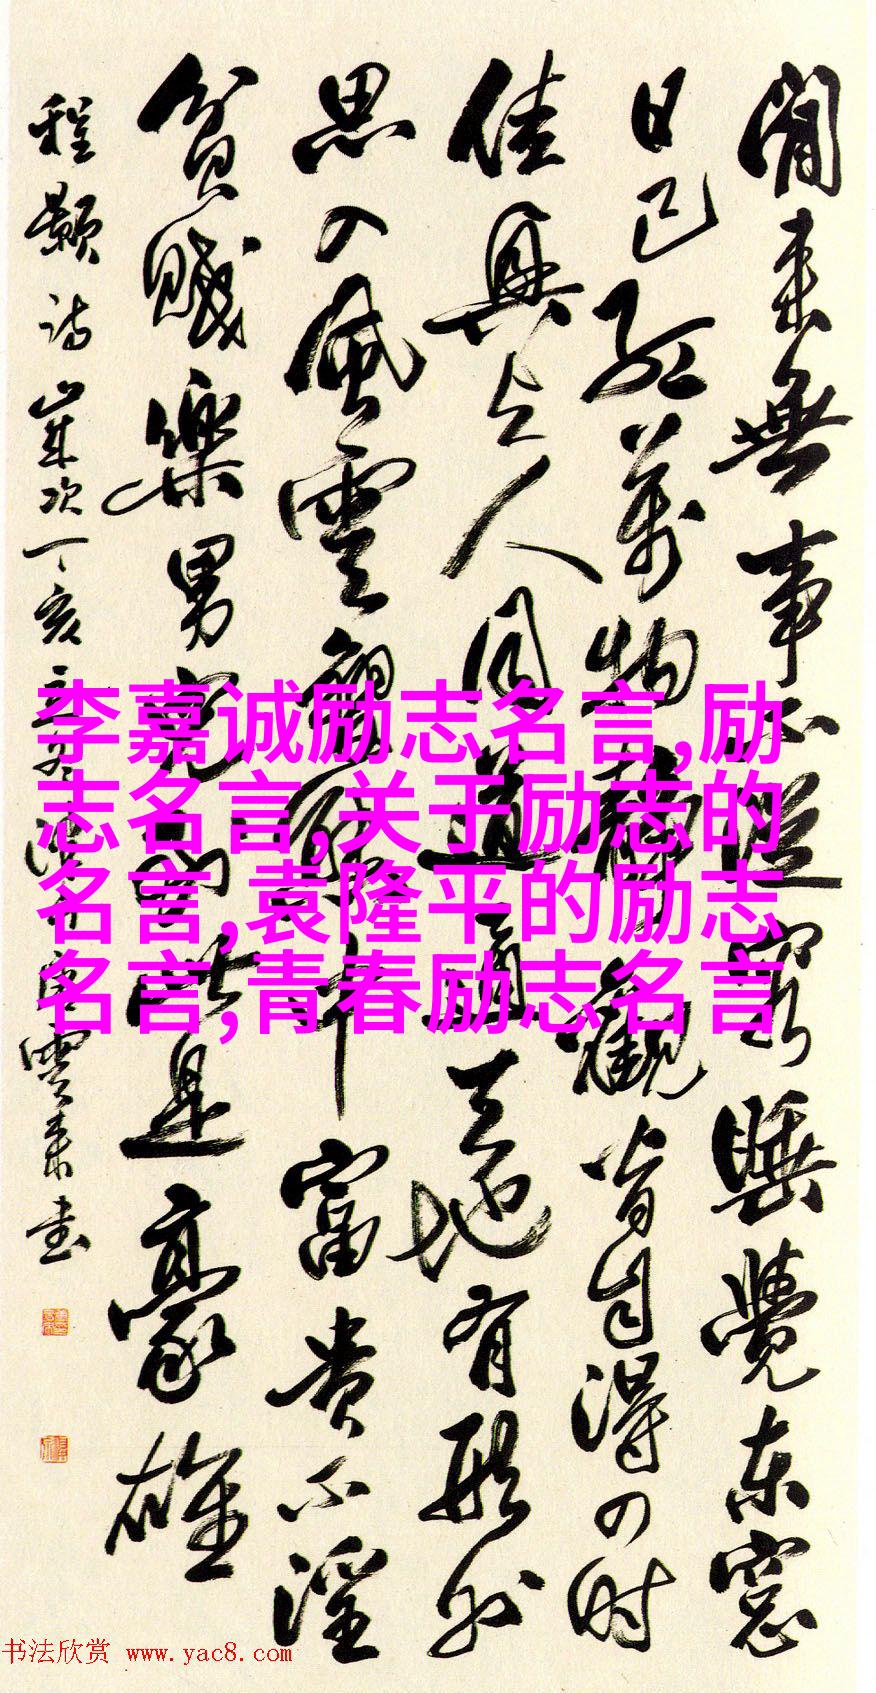 閒来無事不從容睡覺东窓
日已红萬物静觀皆自得四时
佳興与人同道通天地有形外
思入風雲變態中富贵不淫
貧賤樂男兒到此是豪雄
程颢诗歲次丁亥雲来书
李嘉诚励志名言,励
志名言,关于励志的
名言,袁隆平的励志
名言,青春励志名言
书法欣赏 www.yac8.com